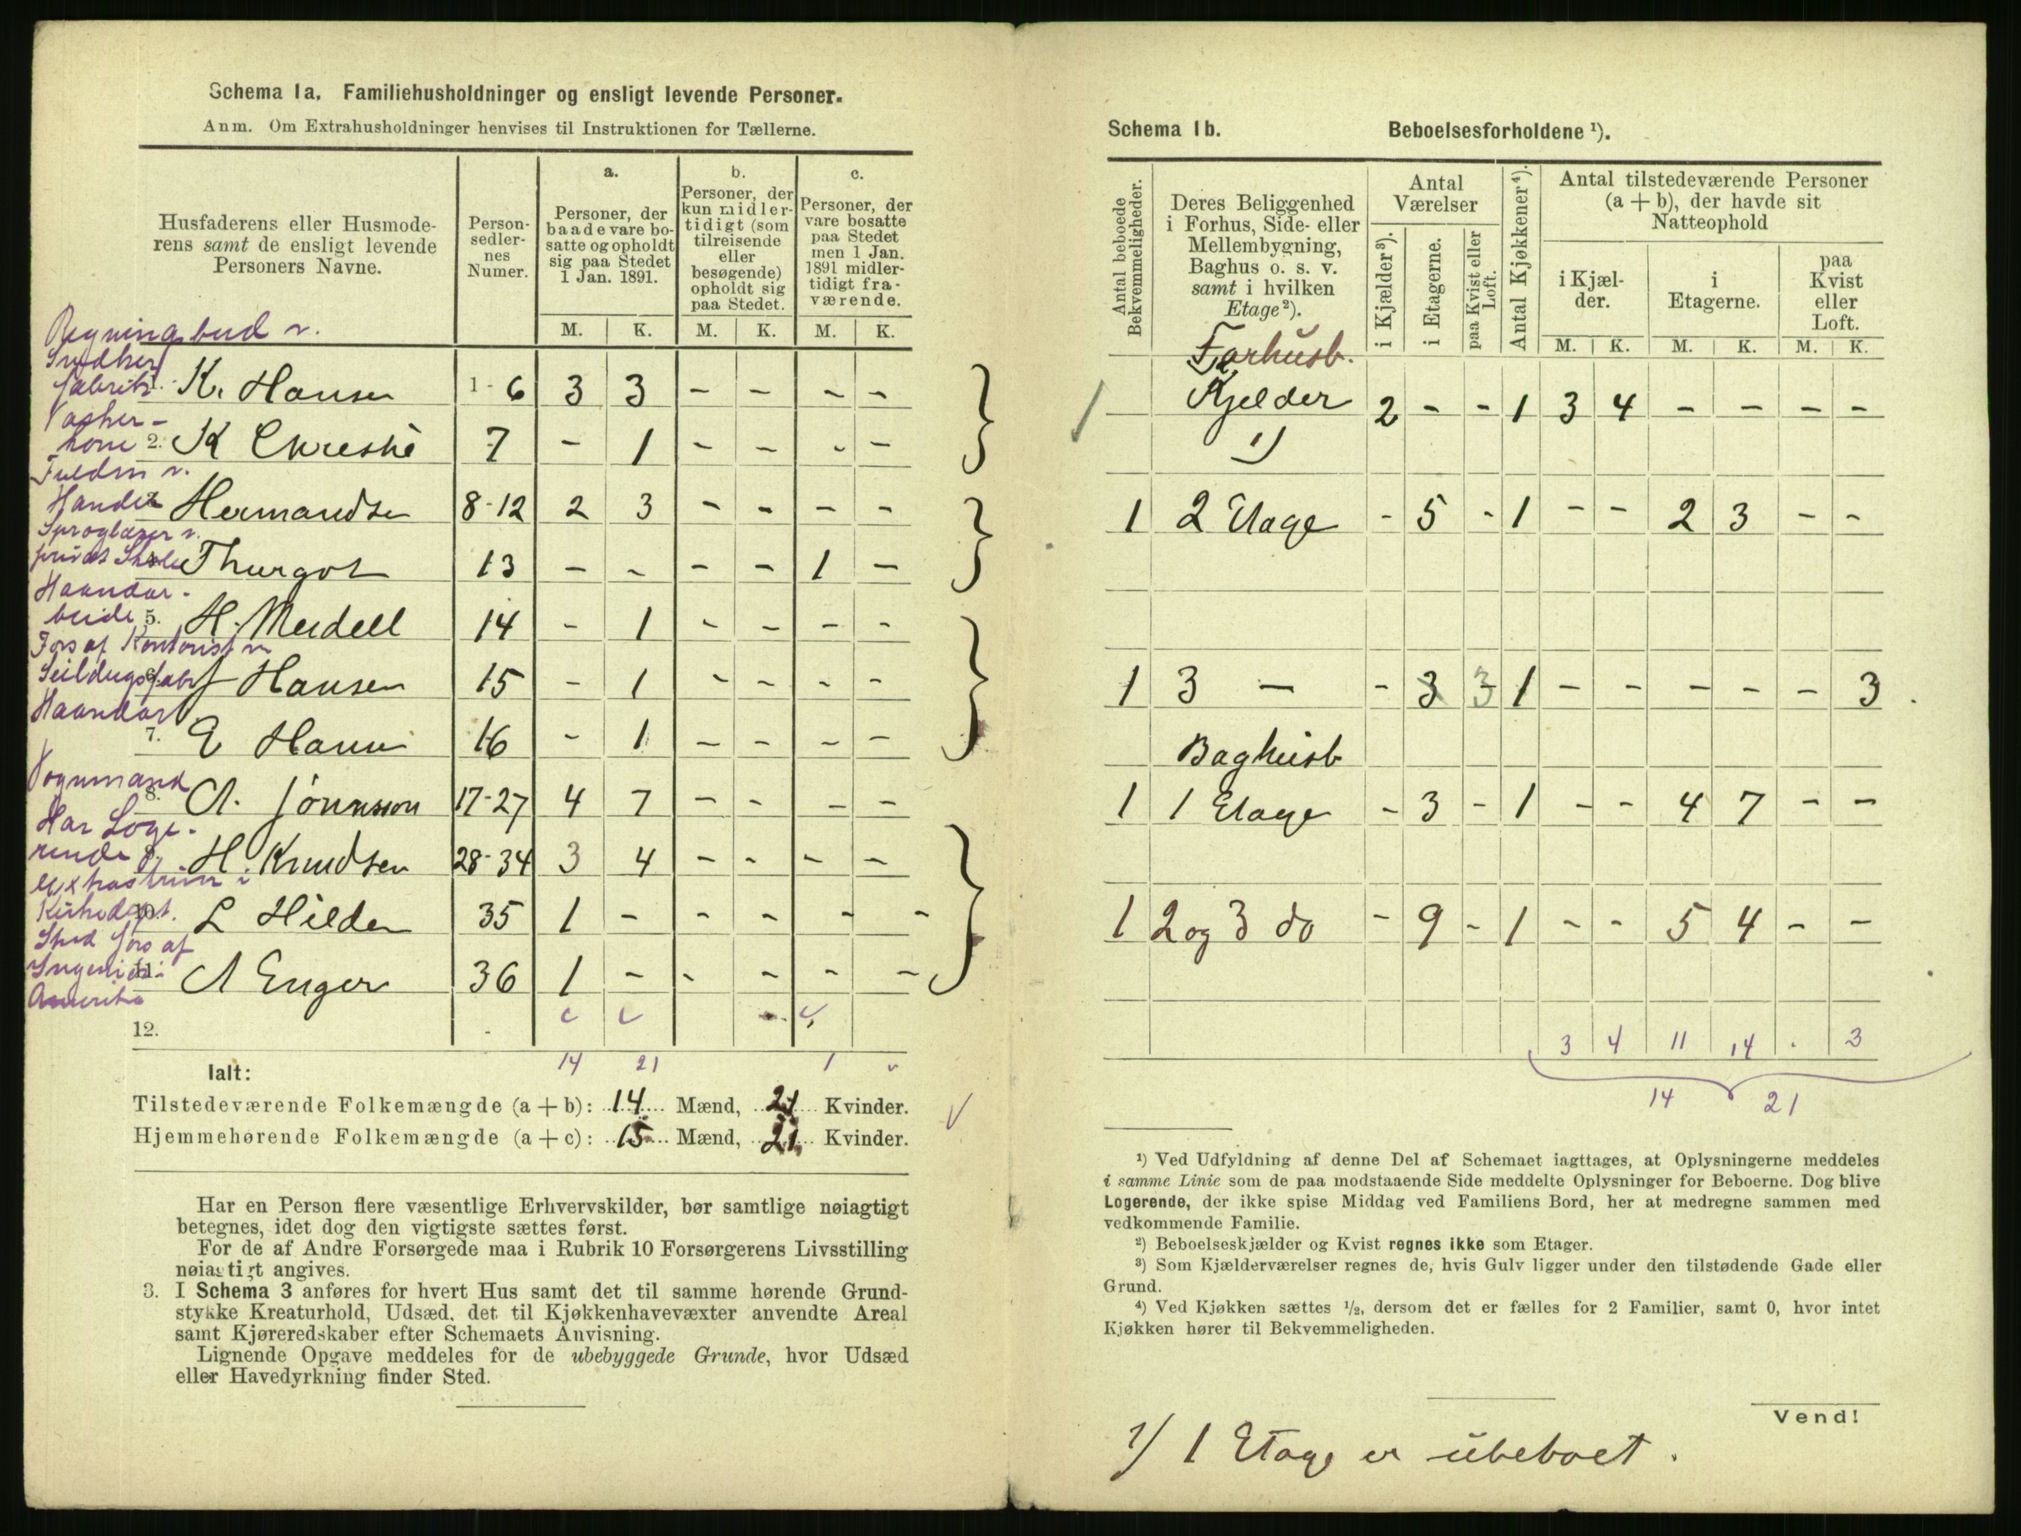 Schema 1a. Familiehusholdninger og ensligt levende Personer.
Anm. Om Extrahusholdninger henvises til Instruktionen for Tællerne.
Husfaderens eller Husmode-
rens samt de ensligt levende
Personers Navne.
Person-
sedler-
nes
Numer.
a.
Personer, der
baade vare bo-
satte og opholdt
sig paa Stedet
1 Jan. 1891.
b.
Personer, der
kun midler-
tidigt (som
tilreisende
eller
besøgende)
opholdt sig
paa Stedet.
c.
Personer, der
vare bosatte
paa Stedet
men 1 Jan.
1891 midler-
tidigt fra-
værende.
M. K. M. K. M. K.
Regningsbud v.
fabrik
1. K. Hansen 1-6 3 3 – – – –
Vasker-
kone 2. K Chrestie 7 – 1 – – – –
Fuldm v.
Handel 3. Hermandsen 8-12 2 3 – – – –
Sproglærer v.
privat Skole 4. Thurgot 13 – – – – 1 –
Haandar-
beide 5. H. Meidell 14 – 1 – – – –
Fors af Kontorist v
Seildugsfabr 6. J Hansen 15 – 1 – – – –
Haandar
7. E Hansen 16 – 1 – – – –
Vognmand
8. A. Jönnsson 17-27 4 7 – – – –
Har Loge-
rende 9. H. Knudsen 28-34 3 4 – – – –
Extraskriver i
Kirkedept. 10. L Hilden 35 1 – – – – –
Stud fors af
Ingeniør i 11. A Enger 36 1 – – – – –
Amerika
12.
Ialt: 14 21 1
Tilstedeværende Folkemængde (a + b): 14 Mænd, 21 Kvinder.
Hjemmehørende Folkemængde (a + c): 15 Mænd, 21 Kvinder.
Har en Person flere væsentlige Erhvervskilder, bør samtlige nøiagtigt
betegnes, idet dog den vigtigste sættes først.
For de af Andre Forsørgede maa i Rubrik 10 Forsørgerens Livsstilling
nøiagtigt angives.
3. I Schema 3 anføres for hvert Hus samt det til samme hørende Grund-
stykke Kreaturhold, Udsæd, det til Kjøkkenhavevæxter anvendte Areal
samt Kjøreredskaber efter Schemaets Anvisning.
Lignende Opgave meddeles for de ubebyggede Grunde, hvor Udsæd
eller Havedyrkning finder Sted.
Schema 1b. Beboelsesforholdene ¹).
Antal beboede
Bekvemmeligheder.
Deres Beliggenhed
i Forhus, Side- eller
Mellembygning,
Baghus o. s. v.
samt i hvilken
Etage ²).
Antal
Værelser
i Kjælder ³).
i Etagerne.
paa Kvist eller
Loft.
Antal Kjøkkener ⁴).
Antal tilstedeværende Personer
(a + b), der havde sit
Natteophold
i Kjæl-
der.
i
Etagerne.
paa
Kvist
eller
Loft.
M. K. M. K. M. K.
Forhusb.
1 Kjelder 2 – – 1 3 4 – – – –
1)
1 2 Etage – 5 – 1 – – 2 3 – –
1 3 — – 3 3 1 – – – – – 3
Baghusb
1 1 Etage – 3 – 1 – – 4 7 – –
1 2 og 3 do – 9 – 1 – – 5 4 – –
3 4 11 14 . 3
14 21
¹) Ved Udfyldning af denne Del af Schemaet iagttages, at Oplysningerne meddeles
i samme Linie som de paa modstaaende Side meddelte Oplysninger for Beboerne. Dog blive
Logerende, der ikke spise Middag ved Familiens Bord, her at medregne sammen med
vedkommende Familie.
²) Beboelseskjælder og Kvist regnes ikke som Etager.
³) Som Kjælderværelser regnes de, hvis Gulv ligger under den tilstødende Gade eller
Grund.
⁴) Ved Kjøkken sættes ½, dersom det er fælles for 2 Familier, samt 0, hvor intet
Kjøkken hører til Bekvemmeligheden.
Vend!
1) 1 Etage er ubeboet.